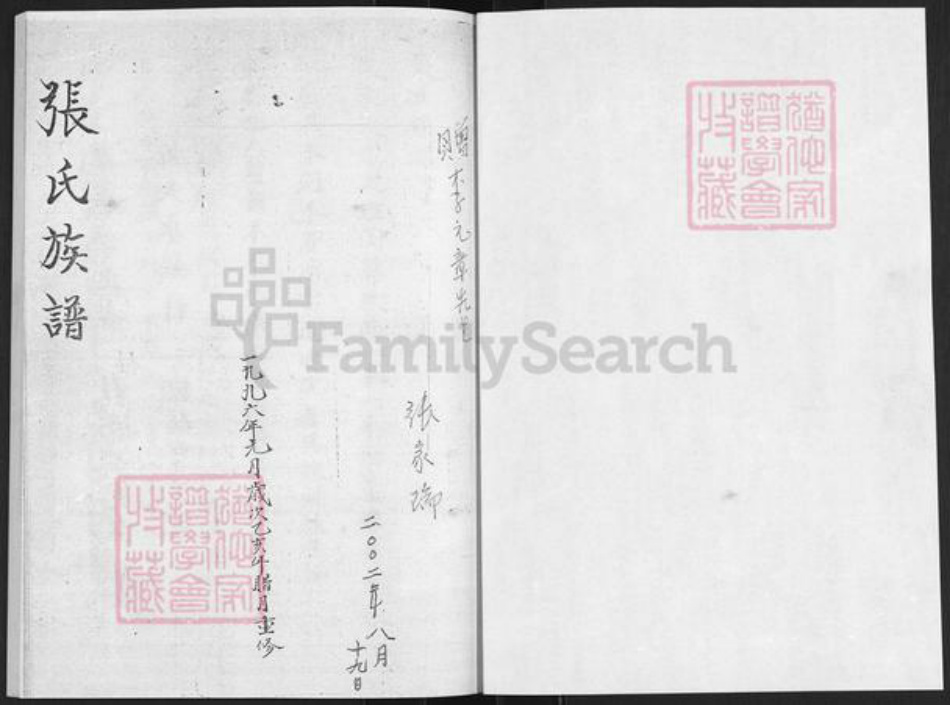 猶他家
譜學會
收藏
贈李元章先生
張家瑞
二〇〇二年八月
十九日
一九九六年元月歲次乙亥年臘月重修
張氏族譜
猶他家
譜學會
收藏
FamilySearch